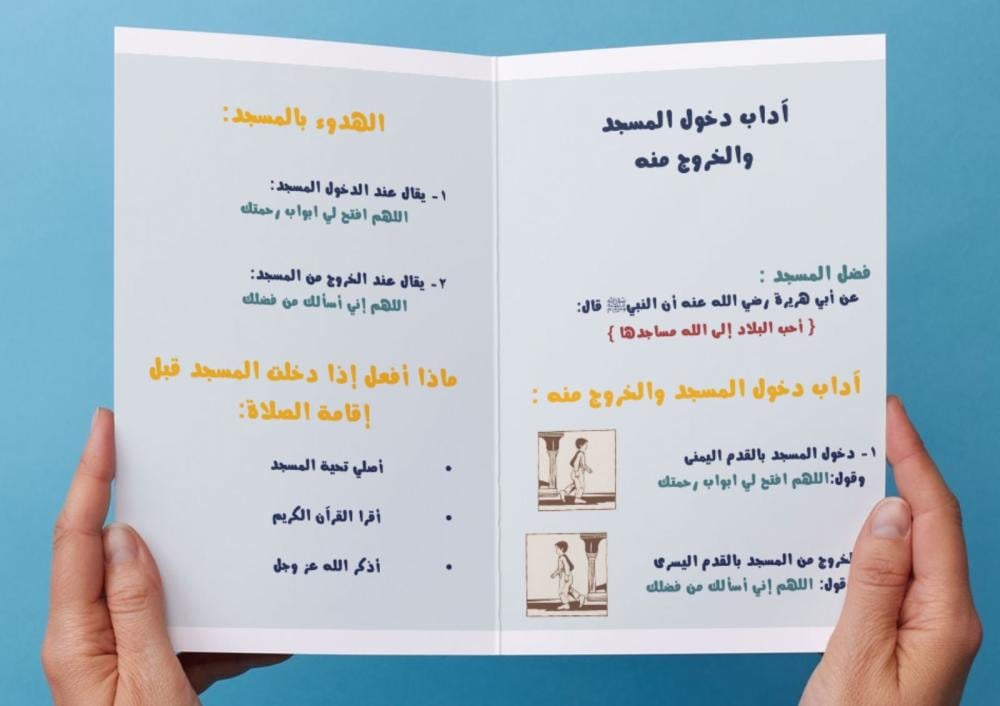 آداب دخول المسجد
والخروج منه
فضل المسجد :
عن أبي هريرة رضي الله عنه أن النبيﷺ قال:
{ أحب البلاد إلى الله مساجدها }
آداب دخول المسجد والخروج منه :
١- دخول المسجد بالقدم اليمنى
وقول:اللهم افتح لي ابواب رحمتك
من المسجد بالقدم اليسرى
اللهم إني أسألك من فضلك
الهدوء بالمسجد:
١- يقال عند الدخول المسجد:
اللهم افتح لي ابواب رحمتك
٢- يقال عند الخروج من المسجد:
اللهم إني أسألك من فضلك
ماذا أفعل إذا دخلت المسجد قبل
إقامة الصلاة:
• أصلي تحية المسجد
• أقرا القرآن الكريم
• أذكر الله عز وجل